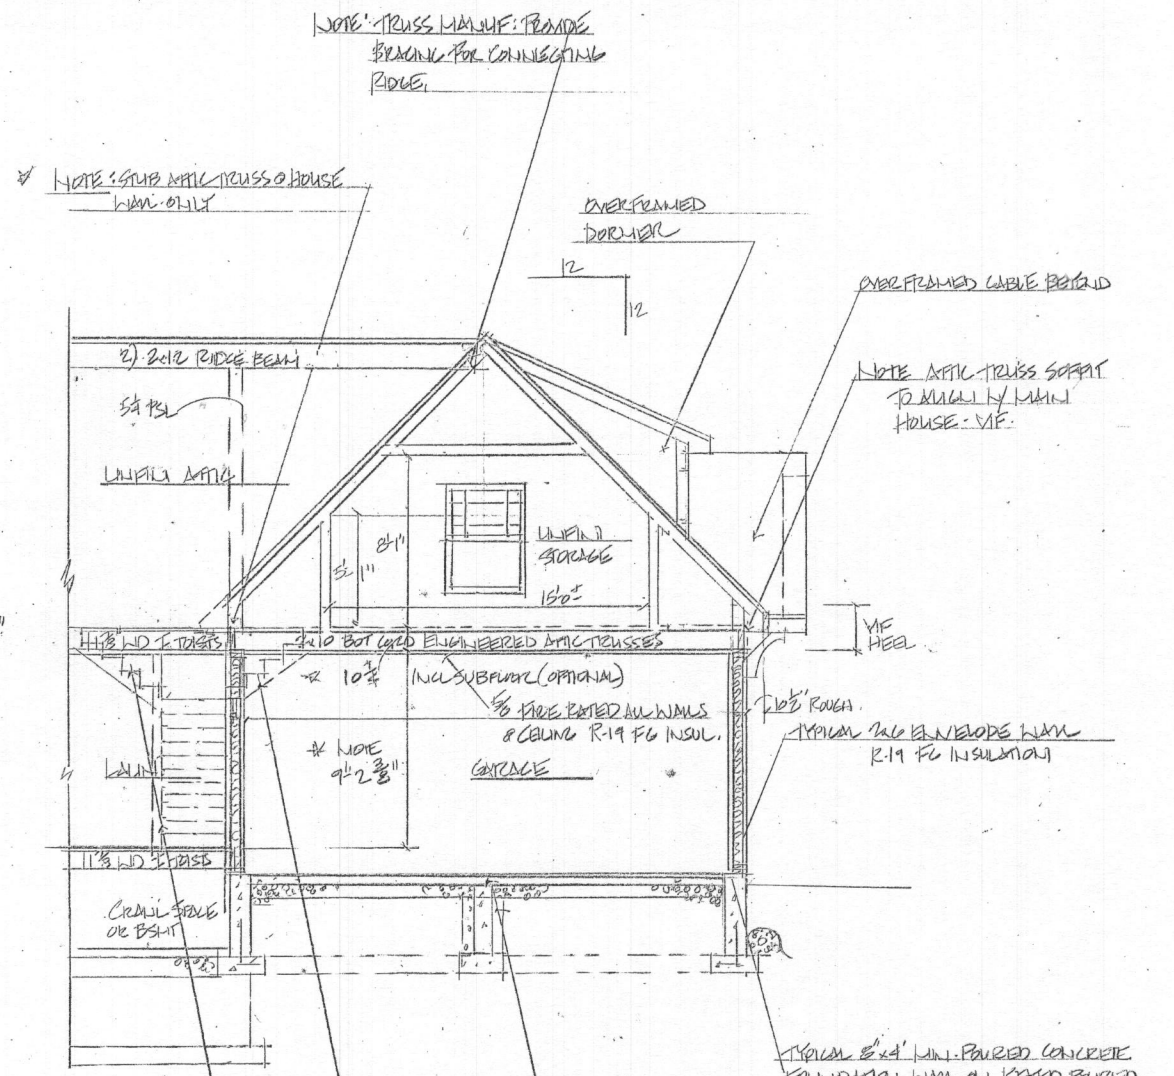 NOTE: TRUSS MANUF: PROVIDE
BRACING FOR CONNECTING
RIDGE.
☆ NOTE: STUB ATTIC TRUSS @ HOUSE
WALL ONLY
OVERFRAMED
DORMER
12
12
OVERFRAMED GABLE BEYOND
NOTE ATTIC TRUSS SOFFIT
TO ALIGN W/ MAIN
HOUSE - VIF.
2) 2x12 RIDGE BEAM
5¼ PSL
UNFIN ATTIC
8'-1"
5'-1"
UNFIN
STORAGE
15'-0"
VIF
HEEL
11⅞ WD I-JOISTS
2x10 BOT CORD ENGINEERED ATTIC TRUSSES
☆ 10 INCL SUBFLOOR (OPTIONAL)
⅝ FIRE RATED ALL WALLS
& CEILING R-19 FG INSUL.
10½" ROUGH.
TYPICAL 2x6 ENVELOPE WALL
R-19 FG INSULATION
☆ NOTE
9'-2
GARAGE
LAUN
11⅞ WD I-JOISTS
CRAWL SPACE
OR BSMT
TYPICAL 8"x4' MIN. POURED CONCRETE
FOUNDATION WALL ON